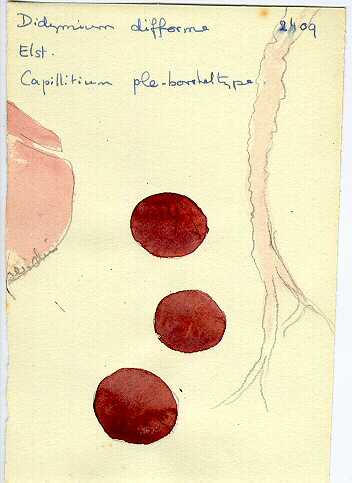 Didymium difforme 2409
Elst.
Capillitium ple-borsteltype.